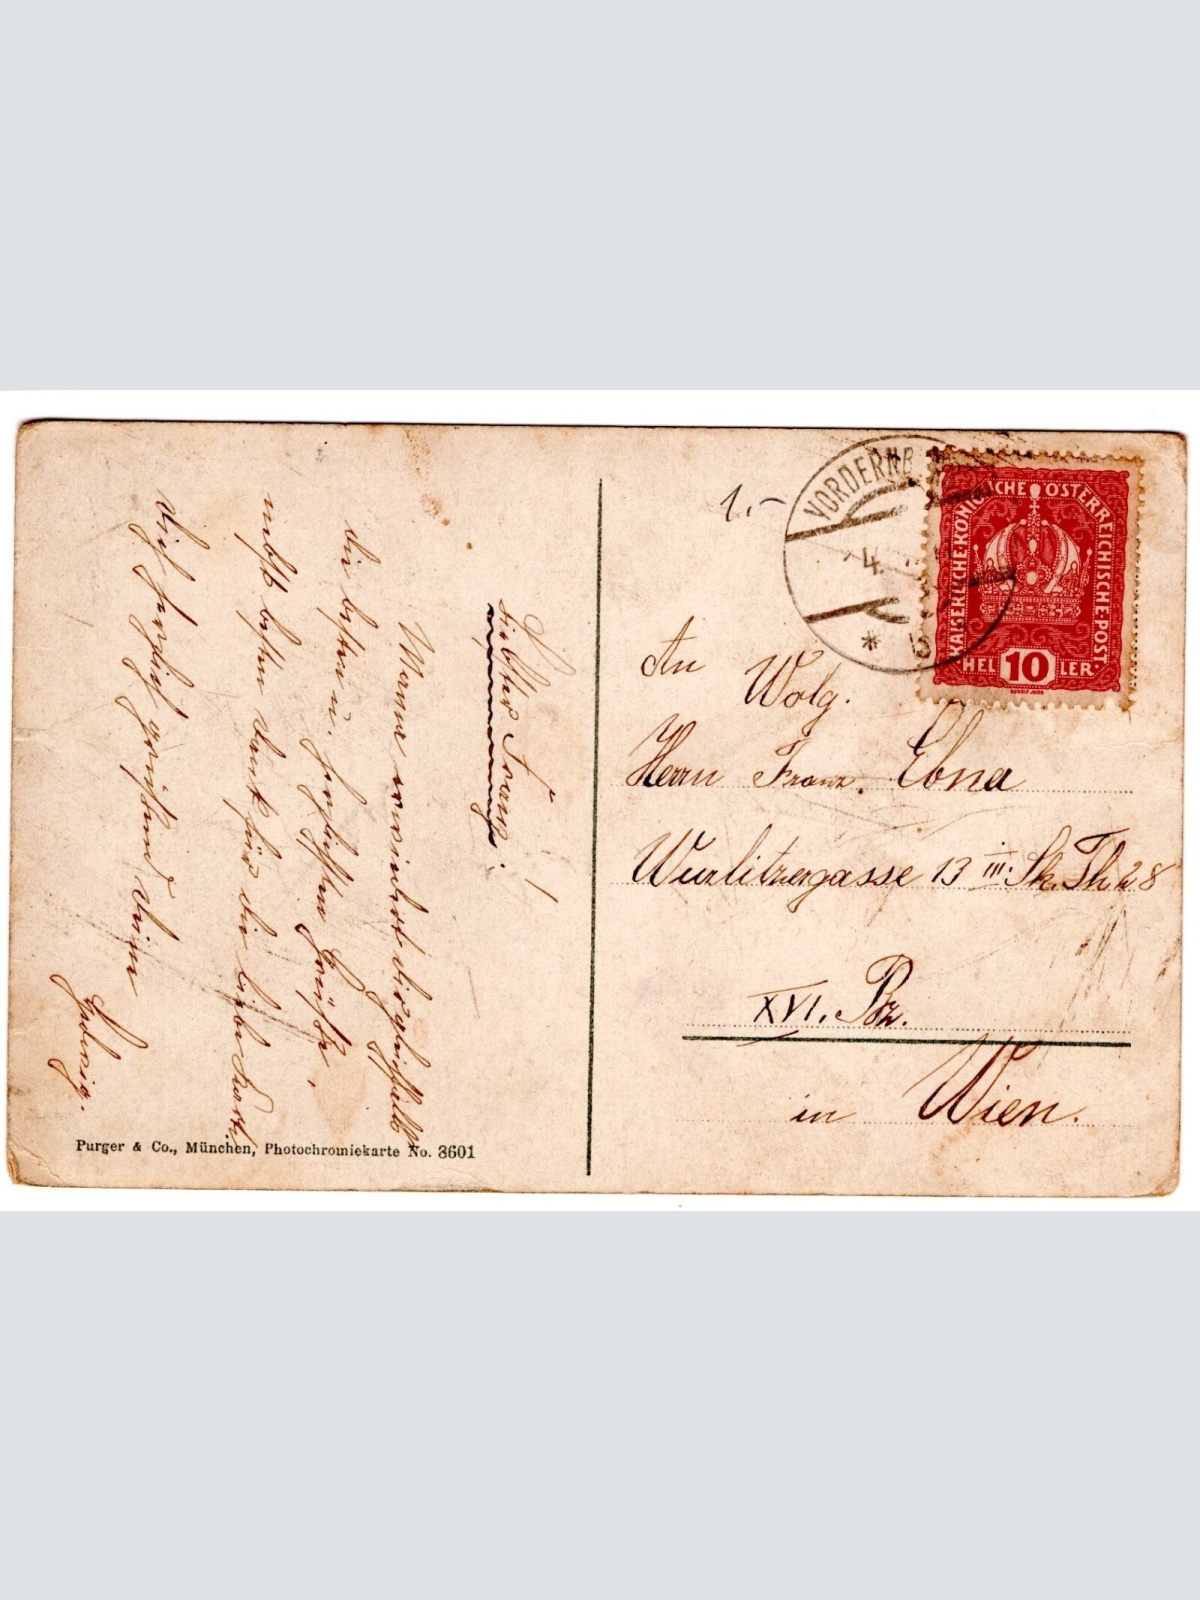 Liebster Franz!
Mama wünscht dir gleichfalls
die besten u. herzlichsten Grüße,
nebst besten Dank für die liebe Karte.
Dich herzlich grüßend deine
Hedwig.
Purger & Co., München, Photochromiekarte No. 3601
1.-
VORDERNB
4.
b
KAISERLICHE KÖNIGLICHE ÖSTERREICHISCHE POST
HEL 10 LER
An
Wolg.
Herrn Franz Ebna
Wurlitzergasse 13 III. Sk. Th 28
XVI. Bz.
in Wien.